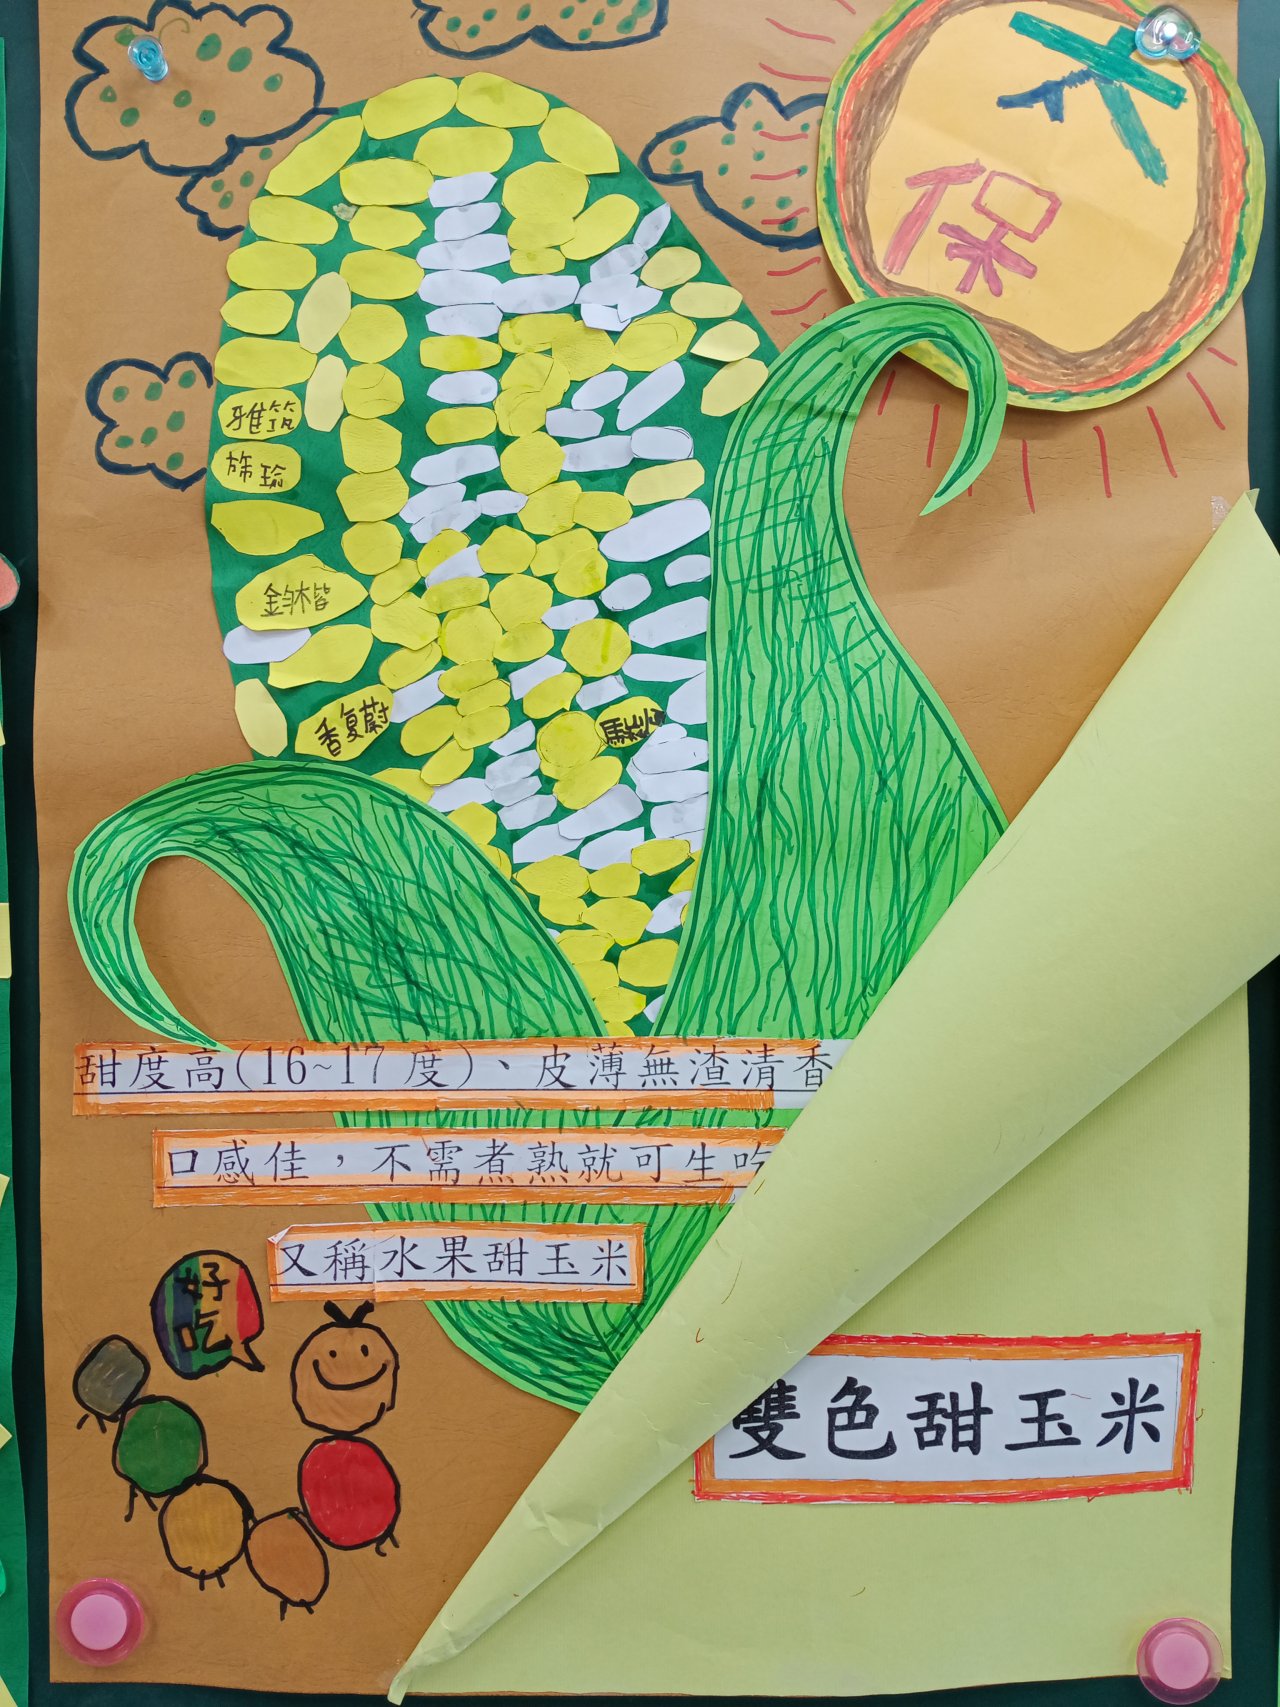 大
保
雅筑
金勻楷
香夏蔚
甜度高(16~17度)、皮薄無渣清香
口感佳，不需煮熟就可生吃
又稱水果甜玉米
好吃
雙色甜玉米